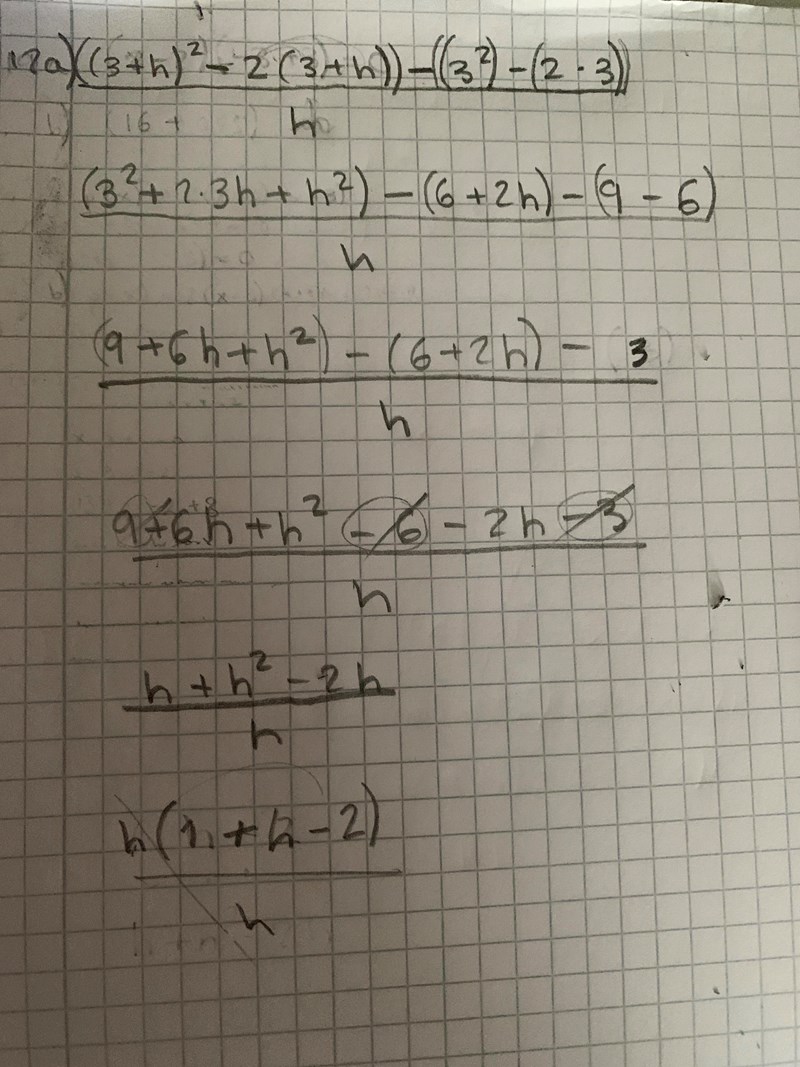 12a) ((3+h)² - 2(3+h)) - ((3²) - (2·3))
h
(3² + 2·3h + h²) - (6+2h) - (9-6)
h
(9+6h+h²) - (6+2h) - 3
h
9+6h+h² -6 -2h -3
h
h+h²-2h
h
h(1+h-2)
h